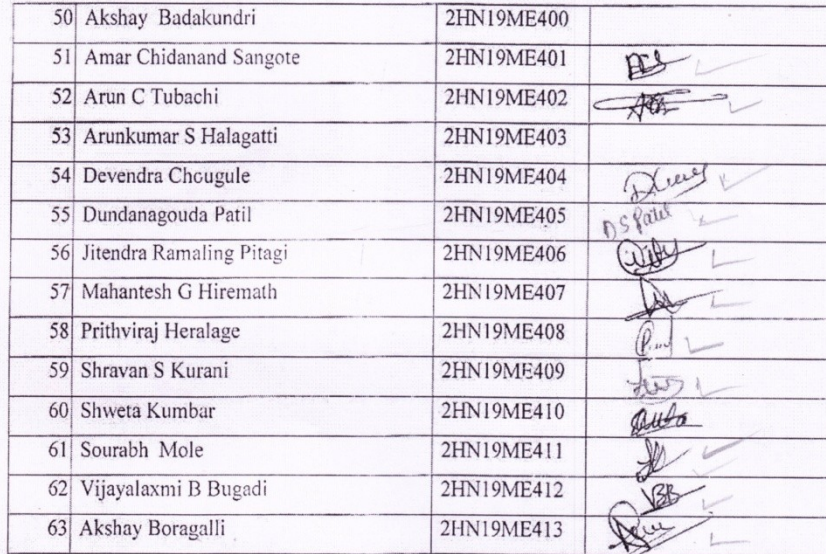 50 Akshay Badakundri 2HN19ME400
51 Amar Chidanand Sangote 2HN19ME401
52 Arun C Tubachi 2HN19ME402
53 Arunkumar S Halagatti 2HN19ME403
54 Devendra Chougule 2HN19ME404
55 Dundanagouda Patil 2HN19ME405 D S Patil
56 Jitendra Ramaling Pitagi 2HN19ME406
57 Mahantesh G Hiremath 2HN19ME407
58 Prithviraj Heralage 2HN19ME408
59 Shravan S Kurani 2HN19ME409
60 Shweta Kumbar 2HN19ME410
61 Sourabh Mole 2HN19ME411
62 Vijayalaxmi B Bugadi 2HN19ME412 VBB
63 Akshay Boragalli 2HN19ME413